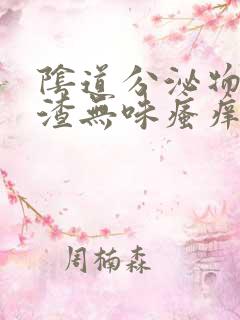 陰道分泌物
渣無味瘙痒
周楠森